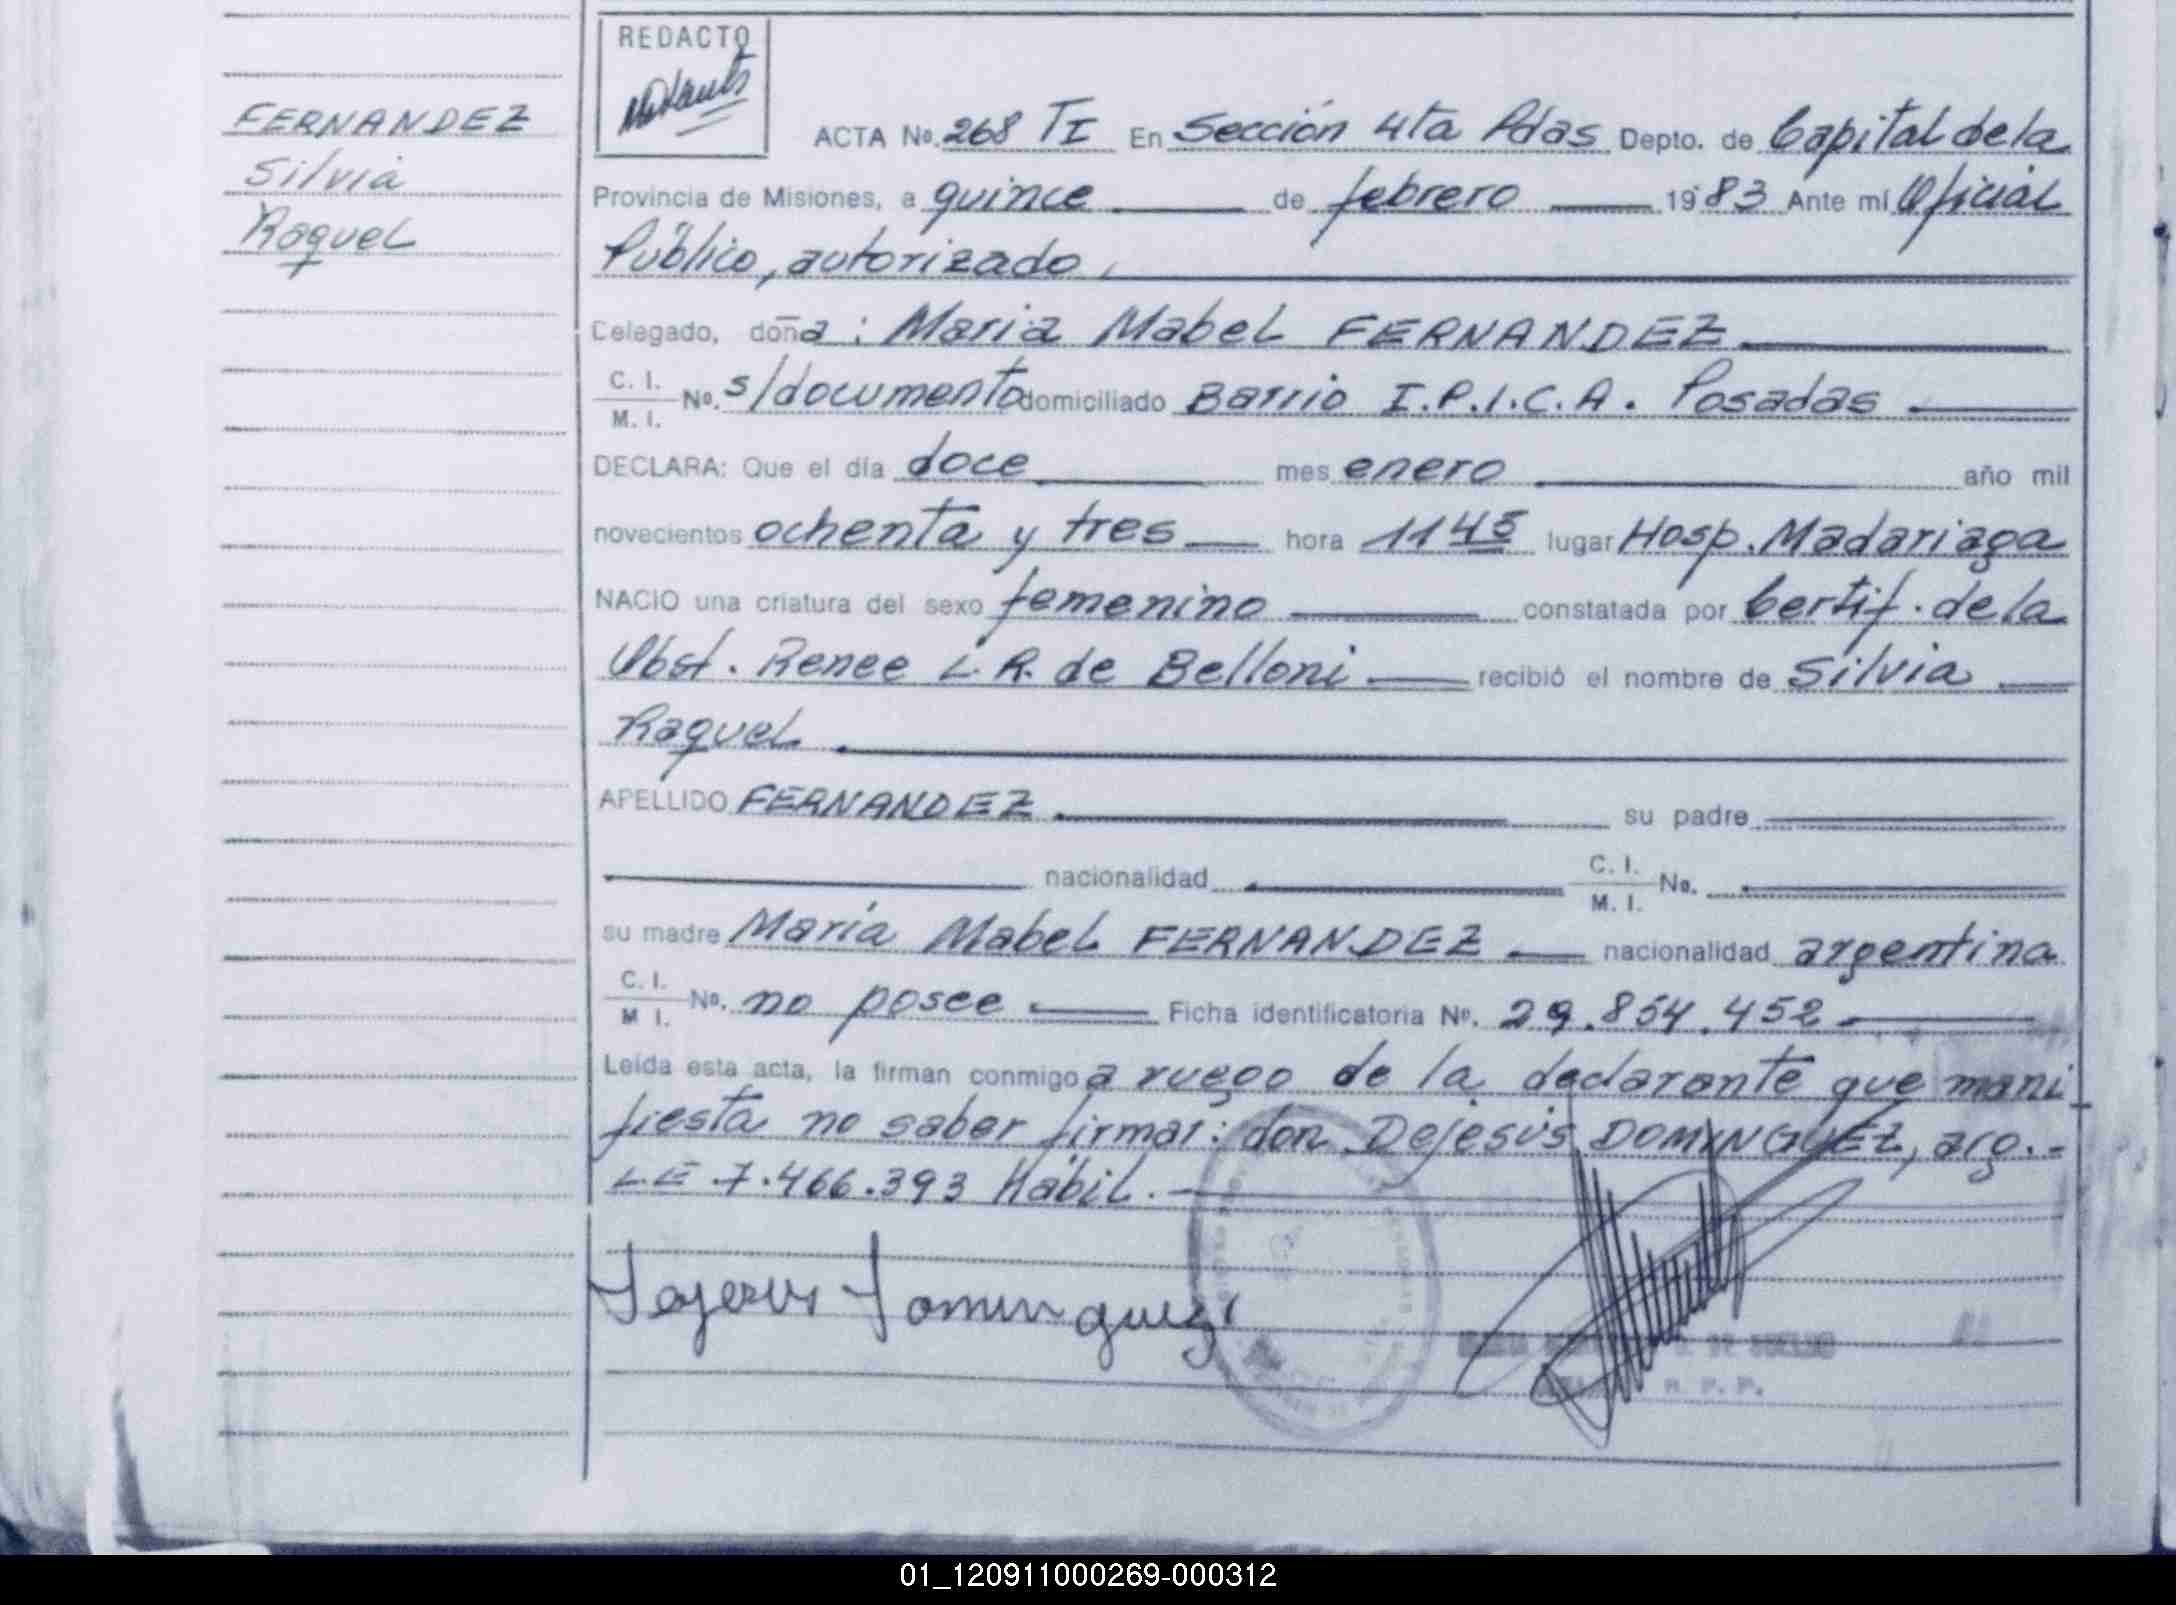 FERNANDEZ
Silvia
Raquel
REDACTO
ACTA No. 268 TI En Sección 4ta Pdas Depto. de Capital de la
Provincia de Misiones, a quince de febrero 1983 Ante mí Oficial
Público, autorizado,
Celegado, doña: Maria Mabel FERNANDEZ
C. I.
M. I. No. s/documento domiciliado Barrio I.P.I.C.A. Posadas
DECLARA: Que el día doce mes enero año mil
novecientos ochenta y tres hora 1145 lugar Hosp. Madariaga
NACIO una criatura del sexo femenino constatada por Certif. de la
Obst. Renee L. R. de Belloni recibió el nombre de Silvia
Raquel
APELLIDO FERNANDEZ su padre
nacionalidad C. I.
M. I. No.
su madre María Mabel FERNANDEZ nacionalidad argentina
C. I.
M I. No. no posee Ficha identificatoria No. 29.854.452
Leída esta acta, la firman conmigo a ruego de la declarante que mani
fiesta no saber firmar: don Dejesús DOMINGUEZ, arg.-
LE 7.466.393 Hábil.
Dejesus Dominguez
R. P. P.
01_120911000269-000312